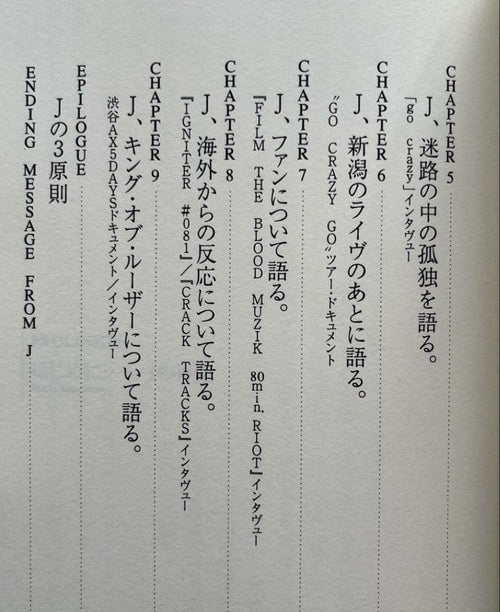 CHAPTER 5
J、迷路の中の孤独を語る。
「go crazy」インタヴュー
CHAPTER 6
J、新潟のライヴのあとに語る。
“GO CRAZY GO”ツアー・ドキュメント
CHAPTER 7
J、ファンについて語る。
『FILM THE BLOOD MUZIK 80min. RIOT』インタヴュー
CHAPTER 8
J、海外からの反応について語る。
『IGNITER #081』/『CRACK TRACKS』インタヴュー
CHAPTER 9
J、キング・オブ・ルーザーについて語る。
渋谷AX5DAYSドキュメント/インタヴュー
EPILOGUE
Jの3原則
ENDING MESSAGE FROM J